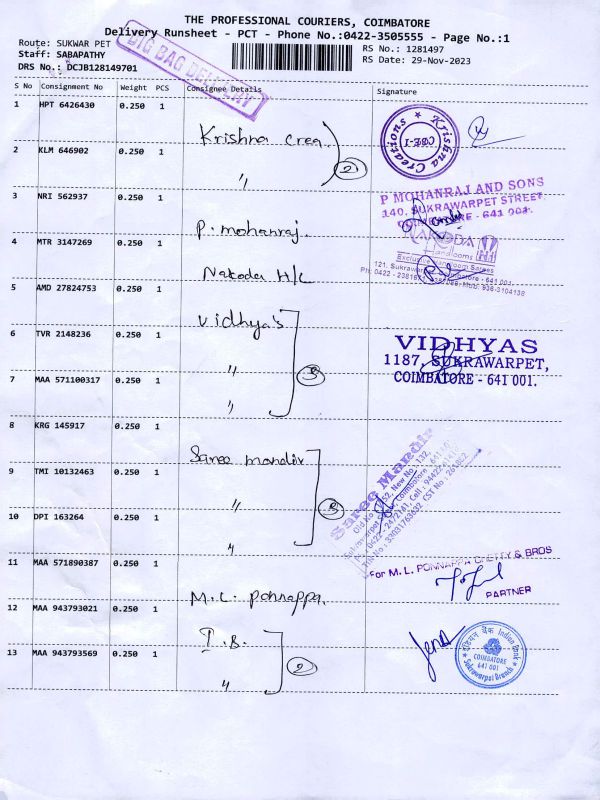 THE PROFESSIONAL COURIERS, COIMBATORE
Delivery Runsheet - PCT - Phone No.:0422-3505555 - Page No.:1
Route: SUKWAR PET
Staff: SABAPATHY
DRS No.: DCJB128149701
BIG BAG DELIVERY
RS No.: 1281497
RS Date: 29-Nov-2023
S No Consignment No Weight PCS Consignee Details Signature
1 HPT 6426430 0.250 1 Krishna Crea
Krishna Creations
CBE-1
2 KLM 646902 0.250 1 "
2
3 NRI 562937 0.250 1 P. mohanraj.
P MOHANRAJ AND SONS
140, SUKRAWARPET STREET,
COIMBATORE - 641 001.
4 MTR 3147269 0.250 1 Nakoda H/C
NAKODA
Handlooms
Exclusive Handloom Sarees
5 AMD 27824753 0.250 1 Vidhya's
6 TVR 2148236 0.250 1 "
3
VIDHYAS
1187, SUKRAWARPET,
COIMBATORE - 641 001.
7 MAA 571100317 0.250 1 "
8 KRG 145917 0.250 1 Saree mandir
Saree Mandir
9 TMI 10132463 0.250 1 "
3
10 DPI 163264 0.250 1 "
11 MAA 571890387 0.250 1 M.L. ponnappa.
For M. L. PONNAPPA CHETTY & BROS
PARTNER
12 MAA 943793021 0.250 1 I.B.
2
13 MAA 943793569 0.250 1 "
Jena
इंडियन बैंक Indian Bank
COIMBATORE
641 001
Sukrawarpet Branch